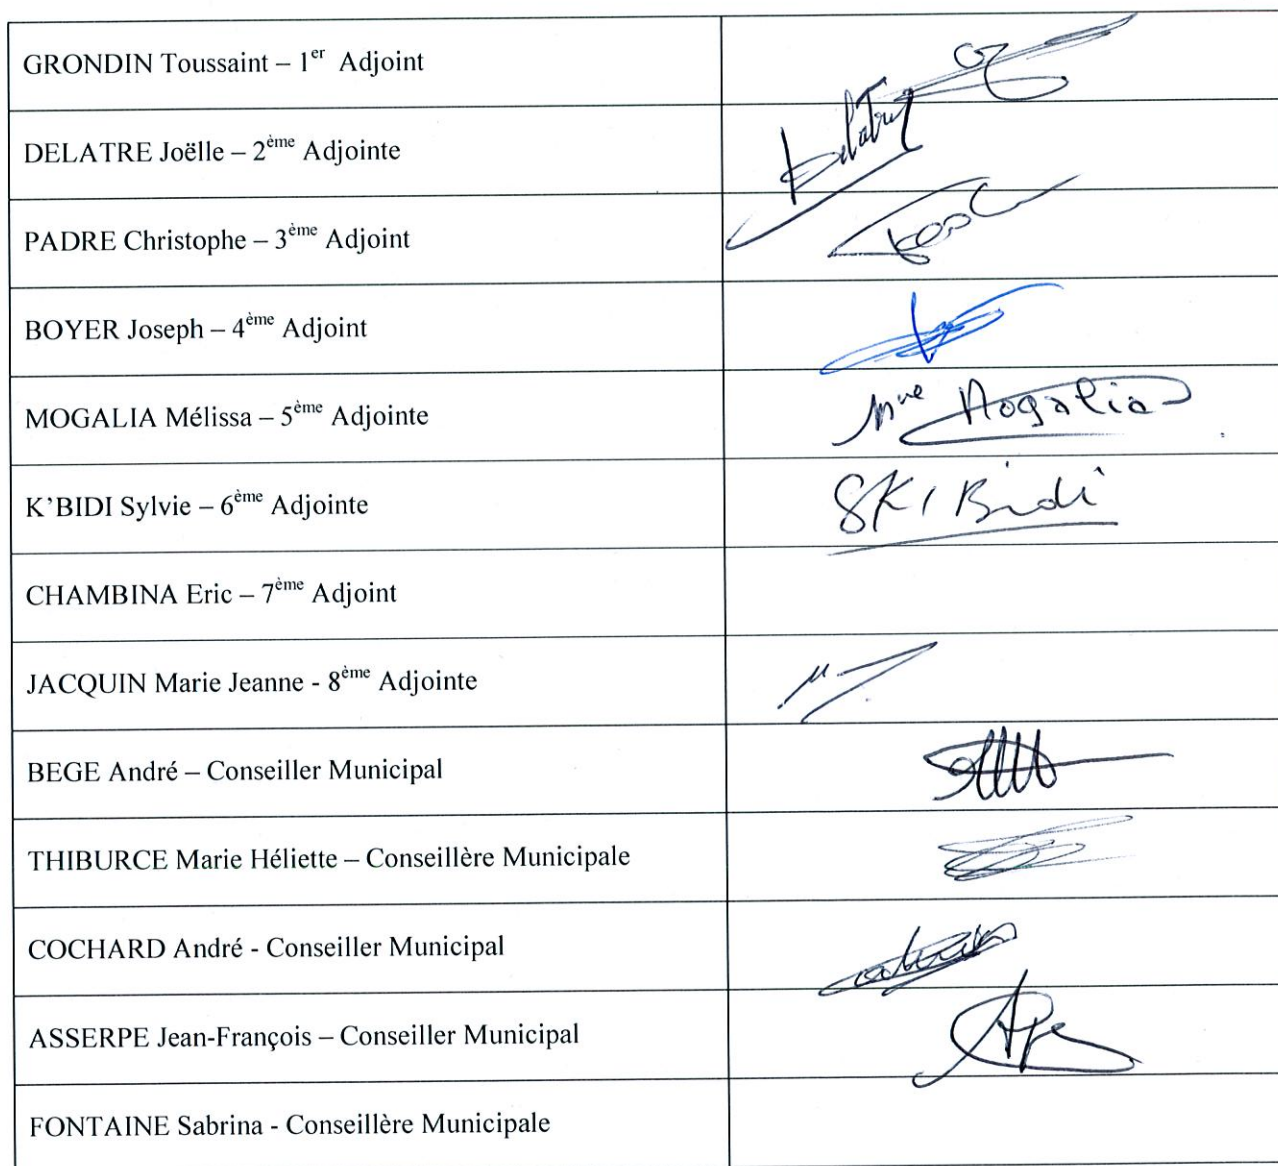 GRONDIN Toussaint – 1er Adjoint
DELATRE Joëlle – 2ème Adjointe
Delatre
PADRE Christophe – 3ème Adjoint
BOYER Joseph – 4ème Adjoint
MOGALIA Mélissa – 5ème Adjointe
Mogalia
K'BIDI Sylvie – 6ème Adjointe
SK'Bidi
CHAMBINA Eric – 7ème Adjoint
JACQUIN Marie Jeanne - 8ème Adjointe
BEGE André – Conseiller Municipal
THIBURCE Marie Héliette – Conseillère Municipale
COCHARD André - Conseiller Municipal
ASSERPE Jean-François – Conseiller Municipal
FONTAINE Sabrina - Conseillère Municipale